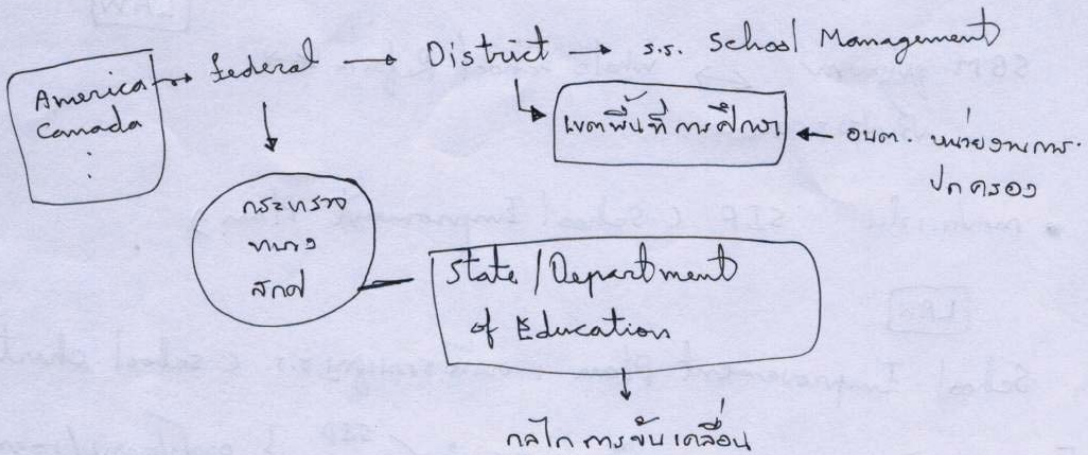 America
Canada
⋮
→ federal → District → ร.ร. School Management
เขตพื้นที่การศึกษา ← อบต. หน่วยงานการ
ปกครอง
กระทรวง
ทบวง
สังกัด
State / Department
of Education
กลไกการขับเคลื่อน